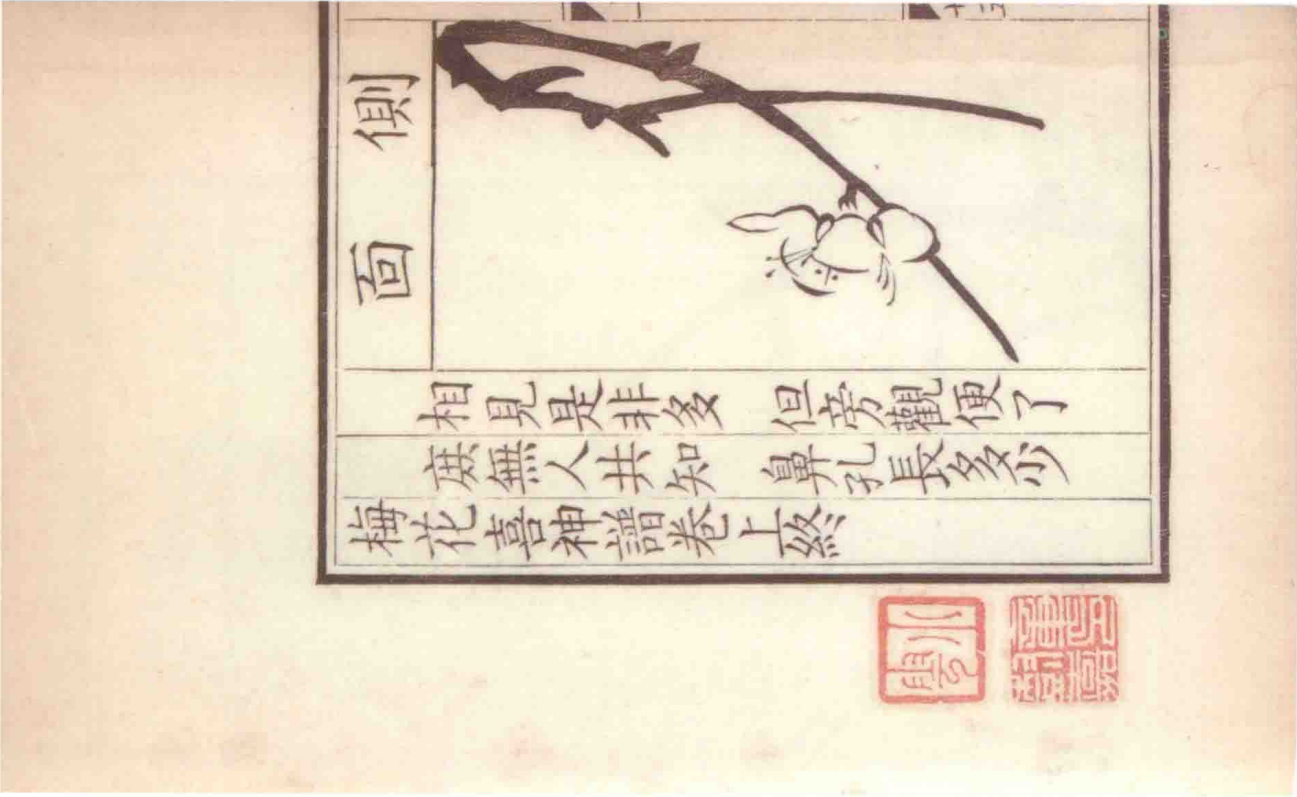 側面
相見是非多　但旁觀便了
庶無人共知　鼻孔長多少
梅花喜神譜卷上終